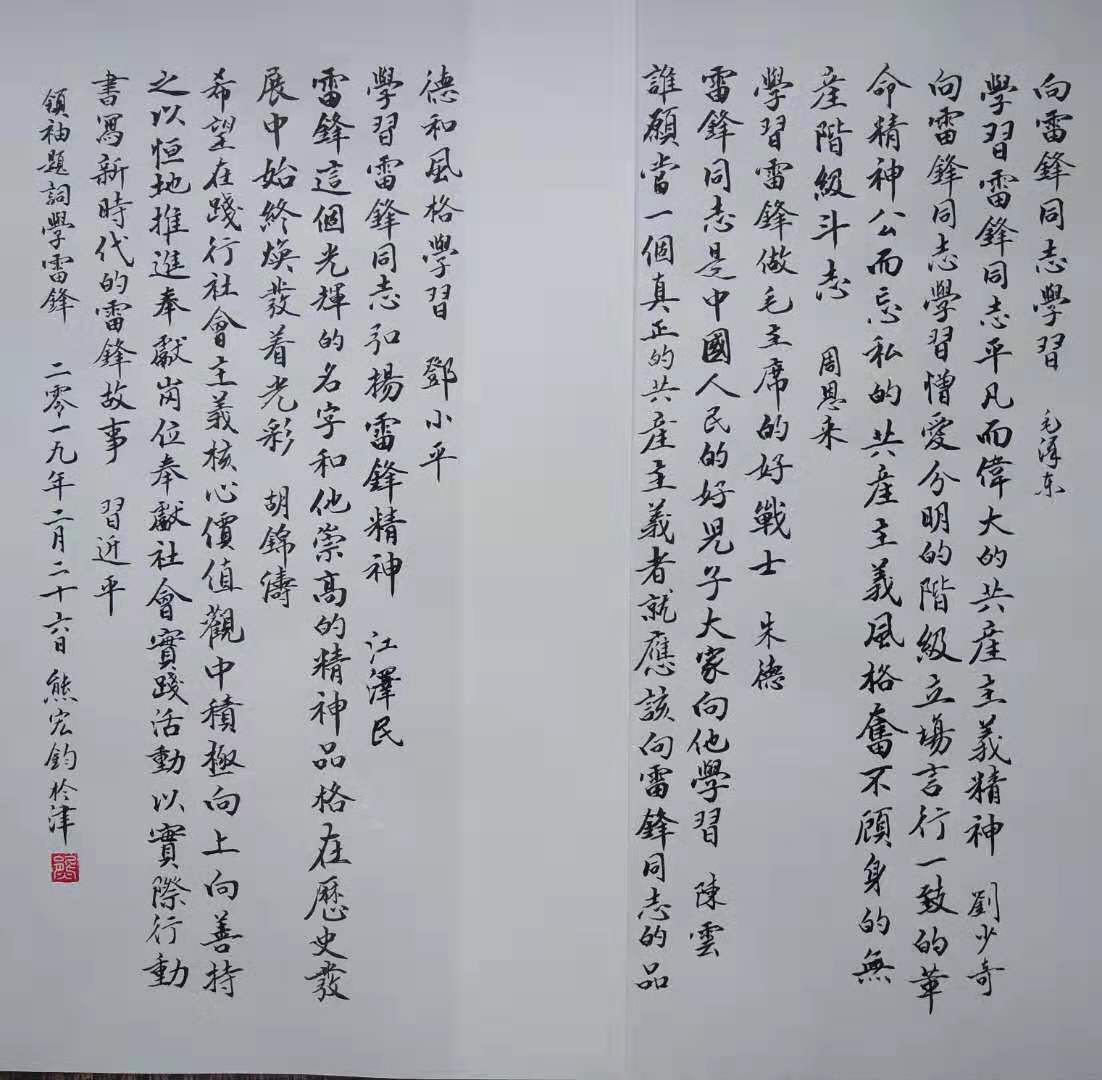 向雷鋒同志學習 毛澤东
學習雷鋒同志平凡而偉大的共產主義精神 劉少奇
向雷鋒同志學習憎愛分明的階級立場言行一致的革
命精神公而忘私的共產主義風格奮不顧身的無
產階級斗志 周恩来
學習雷鋒做毛主席的好戰士 朱德
雷鋒同志是中國人民的好兒子大家向他學習 陳雲
誰願當一個真正的共產主義者就應該向雷鋒同志的品
德和風格學習 鄧小平
學習雷鋒同志弘揚雷鋒精神 江澤民
雷鋒這個光輝的名字和他崇高的精神品格在歷史發
展中始終煥發着光彩 胡錦濤
希望在踐行社會主義核心價值觀中積極向上向善持
之以恒地推進奉獻崗位奉獻社會實踐活動以實際行動
書寫新時代的雷鋒故事 習近平
領袖題詞學雷鋒 二零一九年二月二十六日 熊宏鈞於津